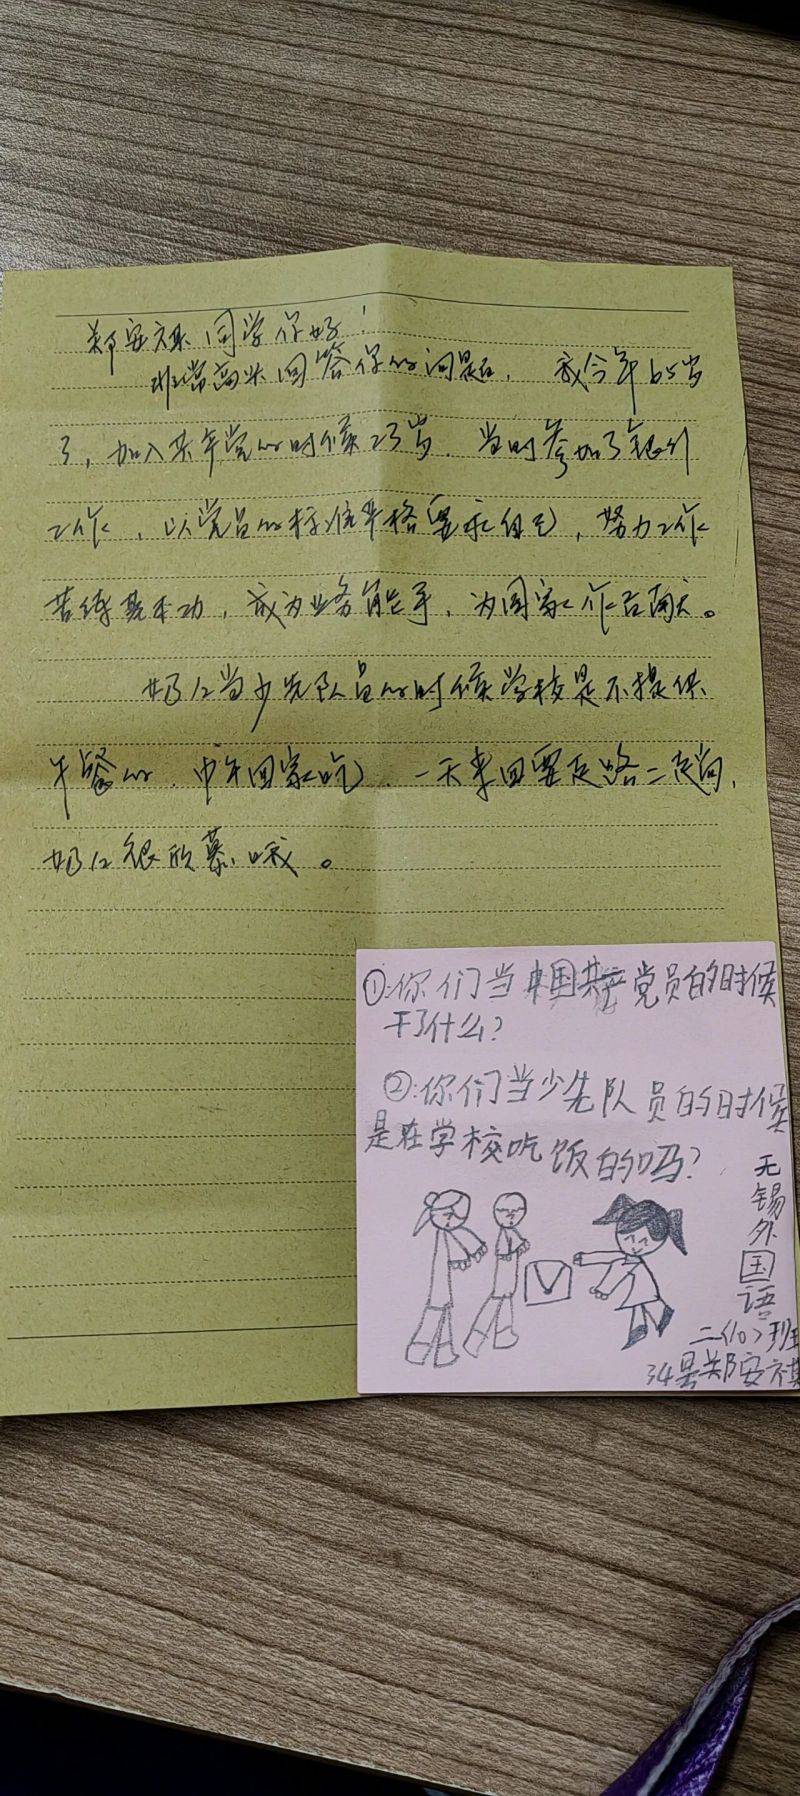 郑安祺同学你好！
非常高兴回答你的问题，我今年65岁
了，加入共产党的时候23岁，当时参加了银行
工作，以党员的标准严格要求自己，努力工作
苦练基本功，成为业务能手，为国家作贡献。
奶奶当少先队员的时候学校是不提供
午餐的，中午回家吃，一天来回要走路二趟，
奶奶很欣慕哦。
①:你们当中国共产党员的时候
干了什么？
②:你们当少先队员的时候
是在学校吃饭的吗？
无锡外国语
二〈10〉班
34号郑安祺